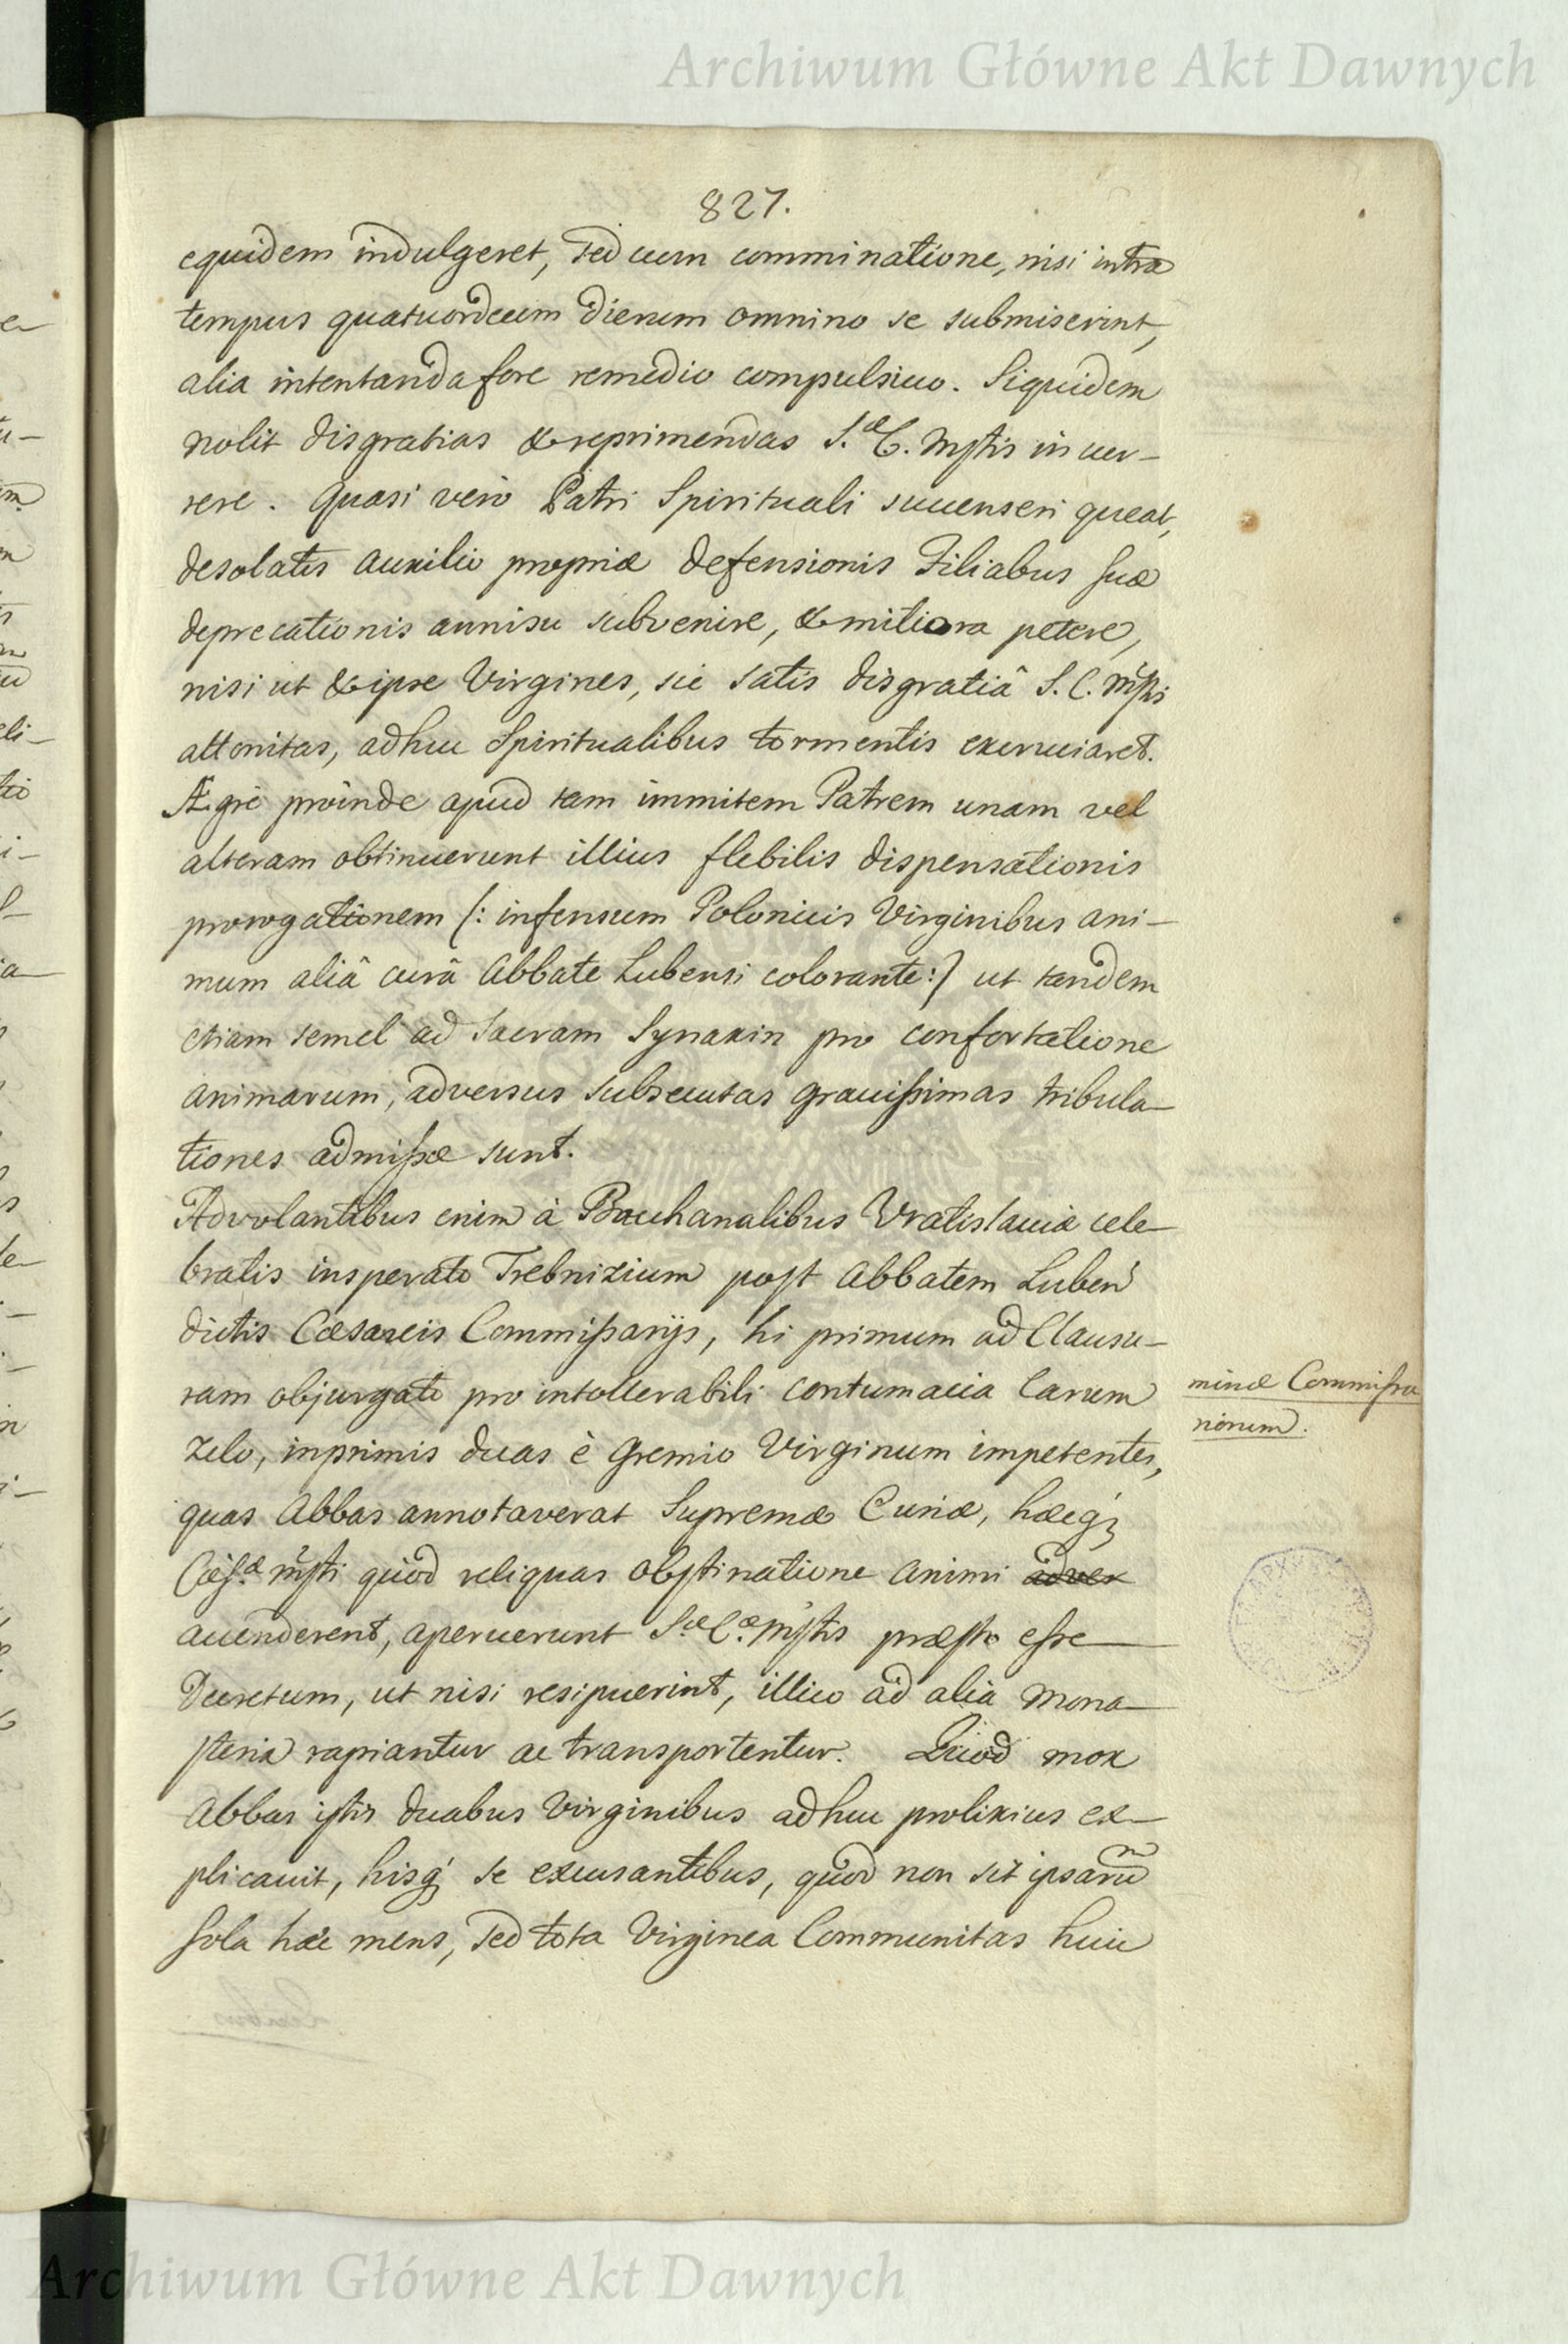 Archiwum Główne Akt Dawnych
827.
equidem indulgeret, sed cum comminatione, nisi intra
tempus quatuordecim dierum omnino se submiserint,
alia intentanda fore remedio compulsivo. Siquidem
nolit disgratias & reprimendas S.æ C. Mstis incur-
rere. Quasi verò Patri Spirituali succenseri queat,
desolatis auxilio propriæ defensionis Filiabus suæ
deprecationis annisu subvenire, & mitiora petere,
nisi ut & ipse Virgines, sic satis disgratiâ S. C. Mtis
attonitas, adhuc Spiritualibus tormentis excruciaret.
Ægrè proinde apud tam immitem Patrem unam vel
alteram obtinuerunt illius flebilis dispensationis
prorogationem (: infensum Polonicis Virginibus ani-
mum aliâ curâ Abbate Lubensi colorante :) ut tandem
etiam semel ad Sacram Synaxin pro confortatione
animarum, adversus subsecutas gravissimas tribula-
tiones admissæ sunt.
Advolantibus enim à Bacchanalibus Vratislaviæ cele-
bratis insperato Trebnizium post Abbatem Luben
dictis Cæsareis Commissarijs, hi primum ad Clausu-
ram objurgato pro intollerabili contumacia Earum
zelo, inprimis duas è gremio Virginum impetentes,
quas Abbas annotaverat Supremæ Curiæ, hæcq;
Cæs.æ Msti quòd reliquas obstinatione animi adver
accenderent, aperuerunt S.æ C.æ Mstis præsto esse
Decretum, ut nisi resipuerint, illico ad alia Mona-
steria rapiantur ac transportentur. Quod mox
Abbas istis duabus Virginibus adhuc prolixius ex-
plicavit, hisq; se excusantibus, quòd non sit ipsarũ
sola hæc mens, sed tota Virginea Communitas huic
minæ Commissa
riorum.
Archiwum Główne Akt Dawnych